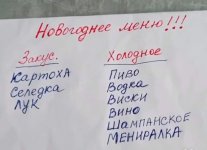 Новогоднее меню!!!
Закус.
Картоха
Селедка
Лук
Холодное
Пиво
Водка
Виски
Вино
Шампанское
Минералка